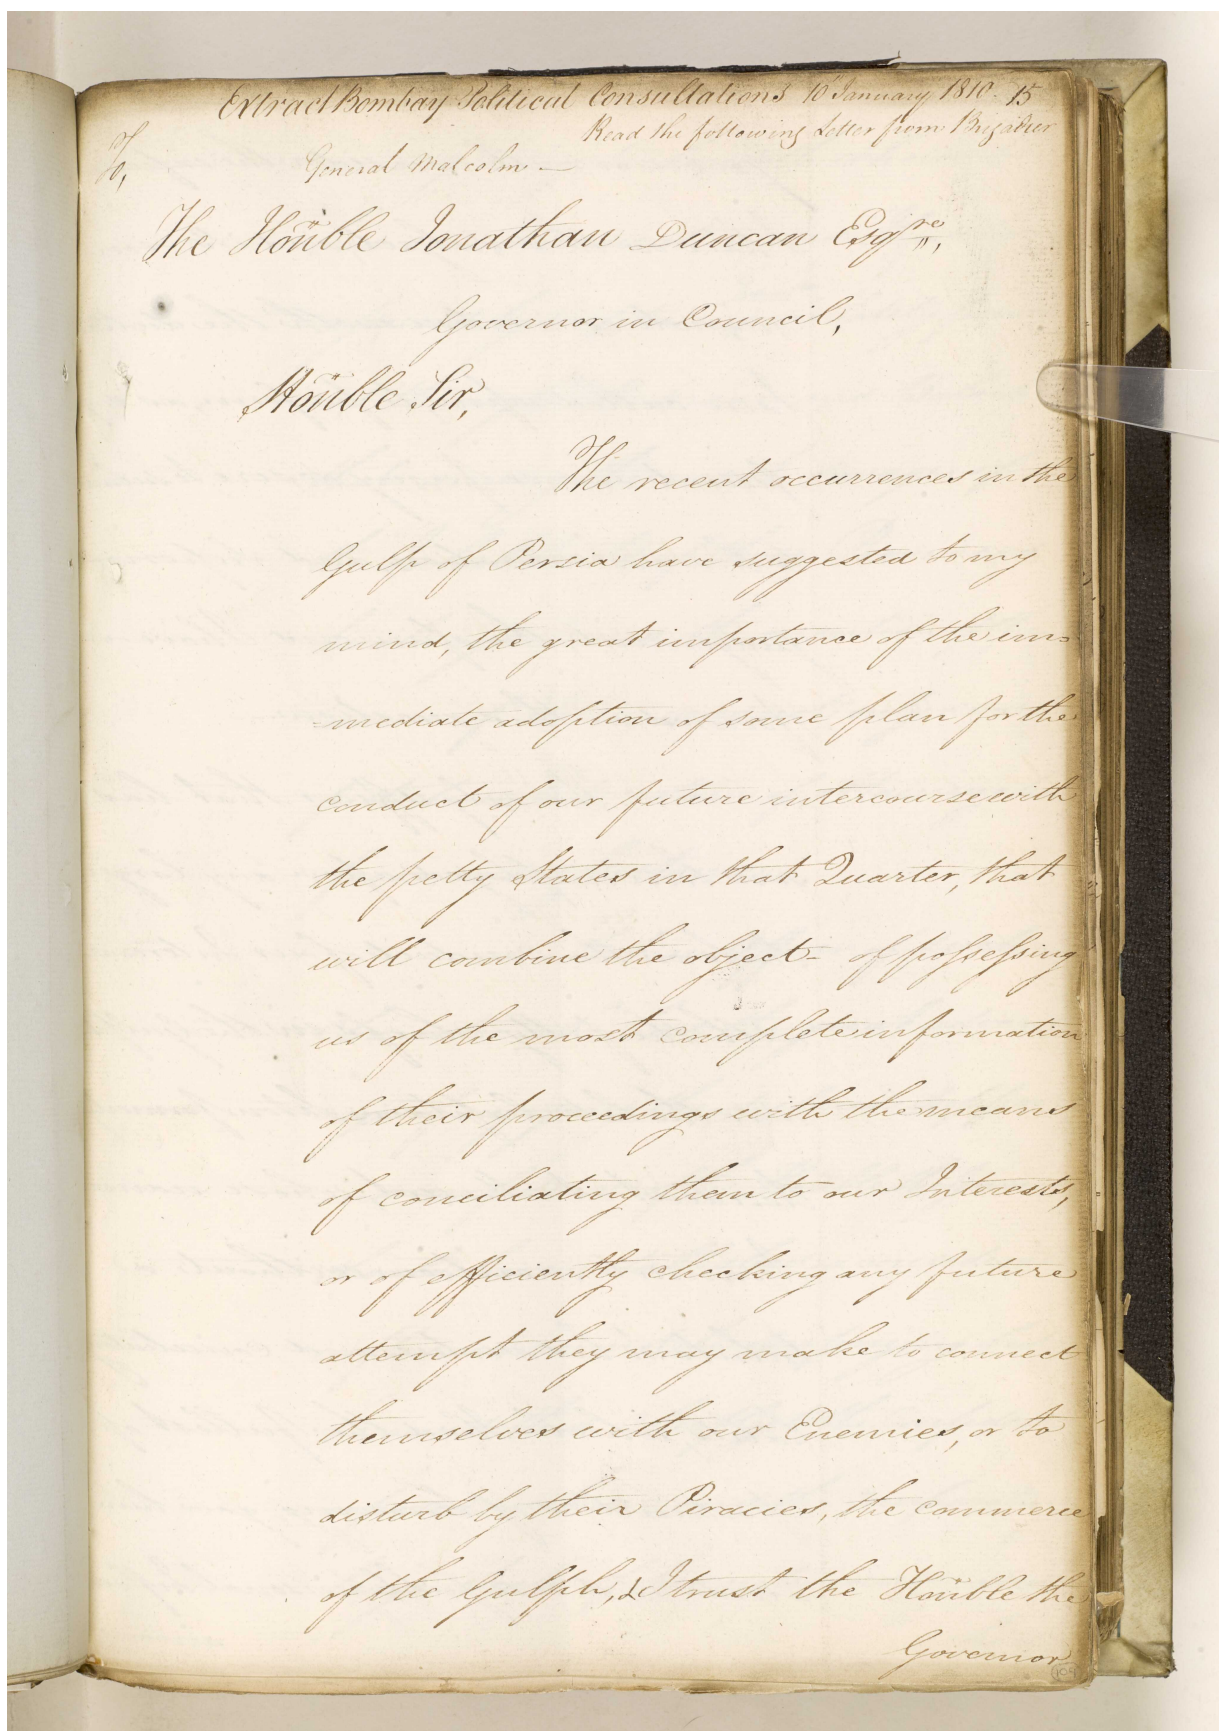 Extract Bombay Political Consultations 10 January 1810 - 15
Read the following Letter from Brigadier
General Malcolm —
To,
The Honble Jonathan Duncan Esqre,
Governor in Council,
Honble Sir,
The recent occurrences in the
Gulph of Persia have suggested to my
mind, the great importance of the im=
=mediate adoption of some plan for the
conduct of our future intercourse with
the petty States in that Quarter, that
will combine the object - of possessing
us of the most complete information
of their proceedings with the means
of conciliating them to our Interests,
or of efficiently checking any future
attempt they may make to connect
themselves with our Enemies, or to
disturb by their Piracies, the commerce
of the Gulph, & I trust the Honble the
Governor